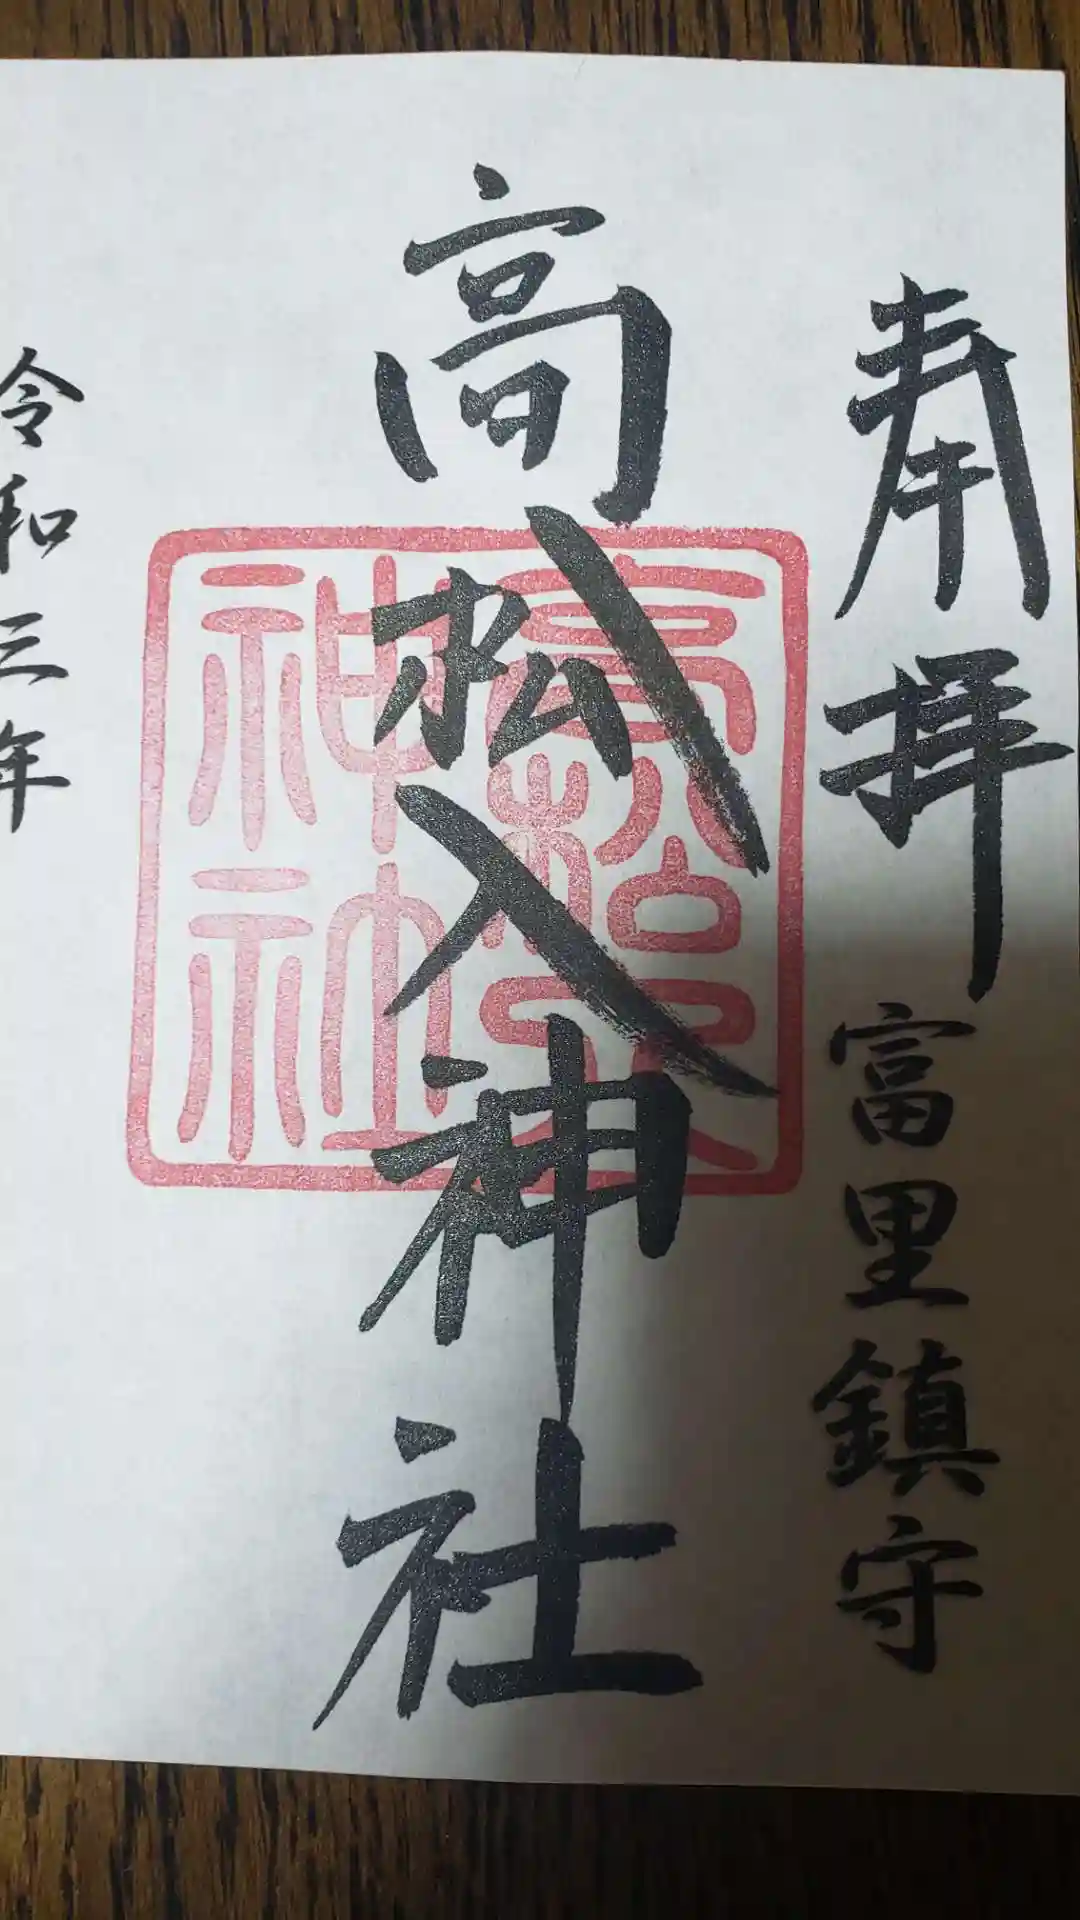 奉拝 富里鎮守
高松入神社
高松入
神社
令和三年